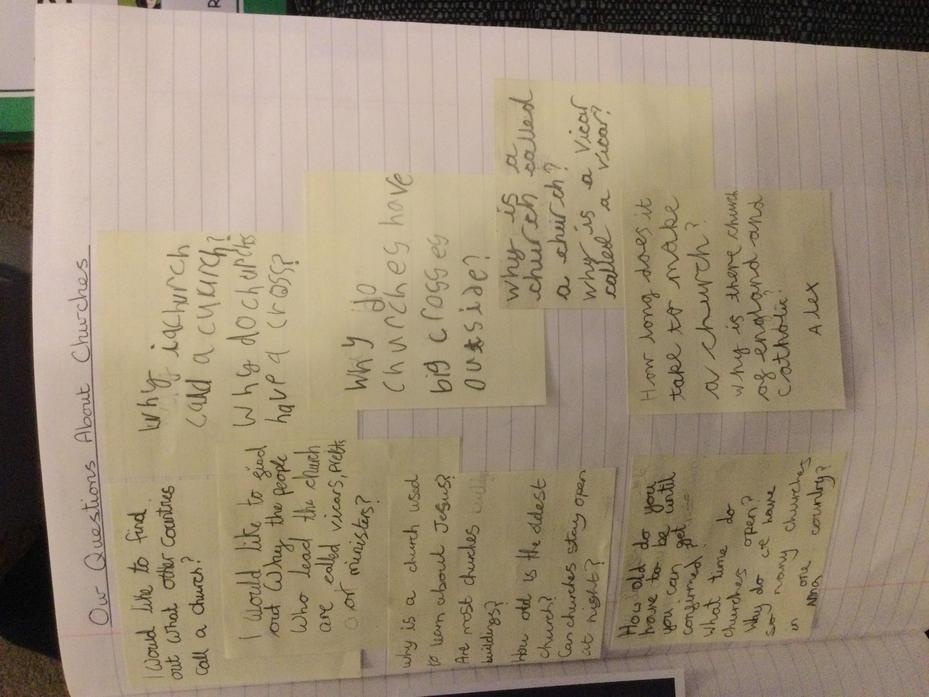 Our Questions About Churches
I Would like to find
out what other countries
call a church?
I Would like to
out Whay the people
Who lead the church
are called vicars,
or ministers?
why is a church used
to learn about Jesus?
Are most churches
buildings?
How old is the oldest
church?
Can churches stay open
at night?
How old do you
have to be until
you can get
confirmed?
what time do
churches open?
Why do we have
so many churches
in one country?
Why church
a church?
Why do churchs
have a cross?
Why do
churches have
big crosses
outside?
why is a
church called
a church?
why is a vicar
called a vicar?
How long does it
take to make
a church?
why is there church
of england and
catholic?
Alex